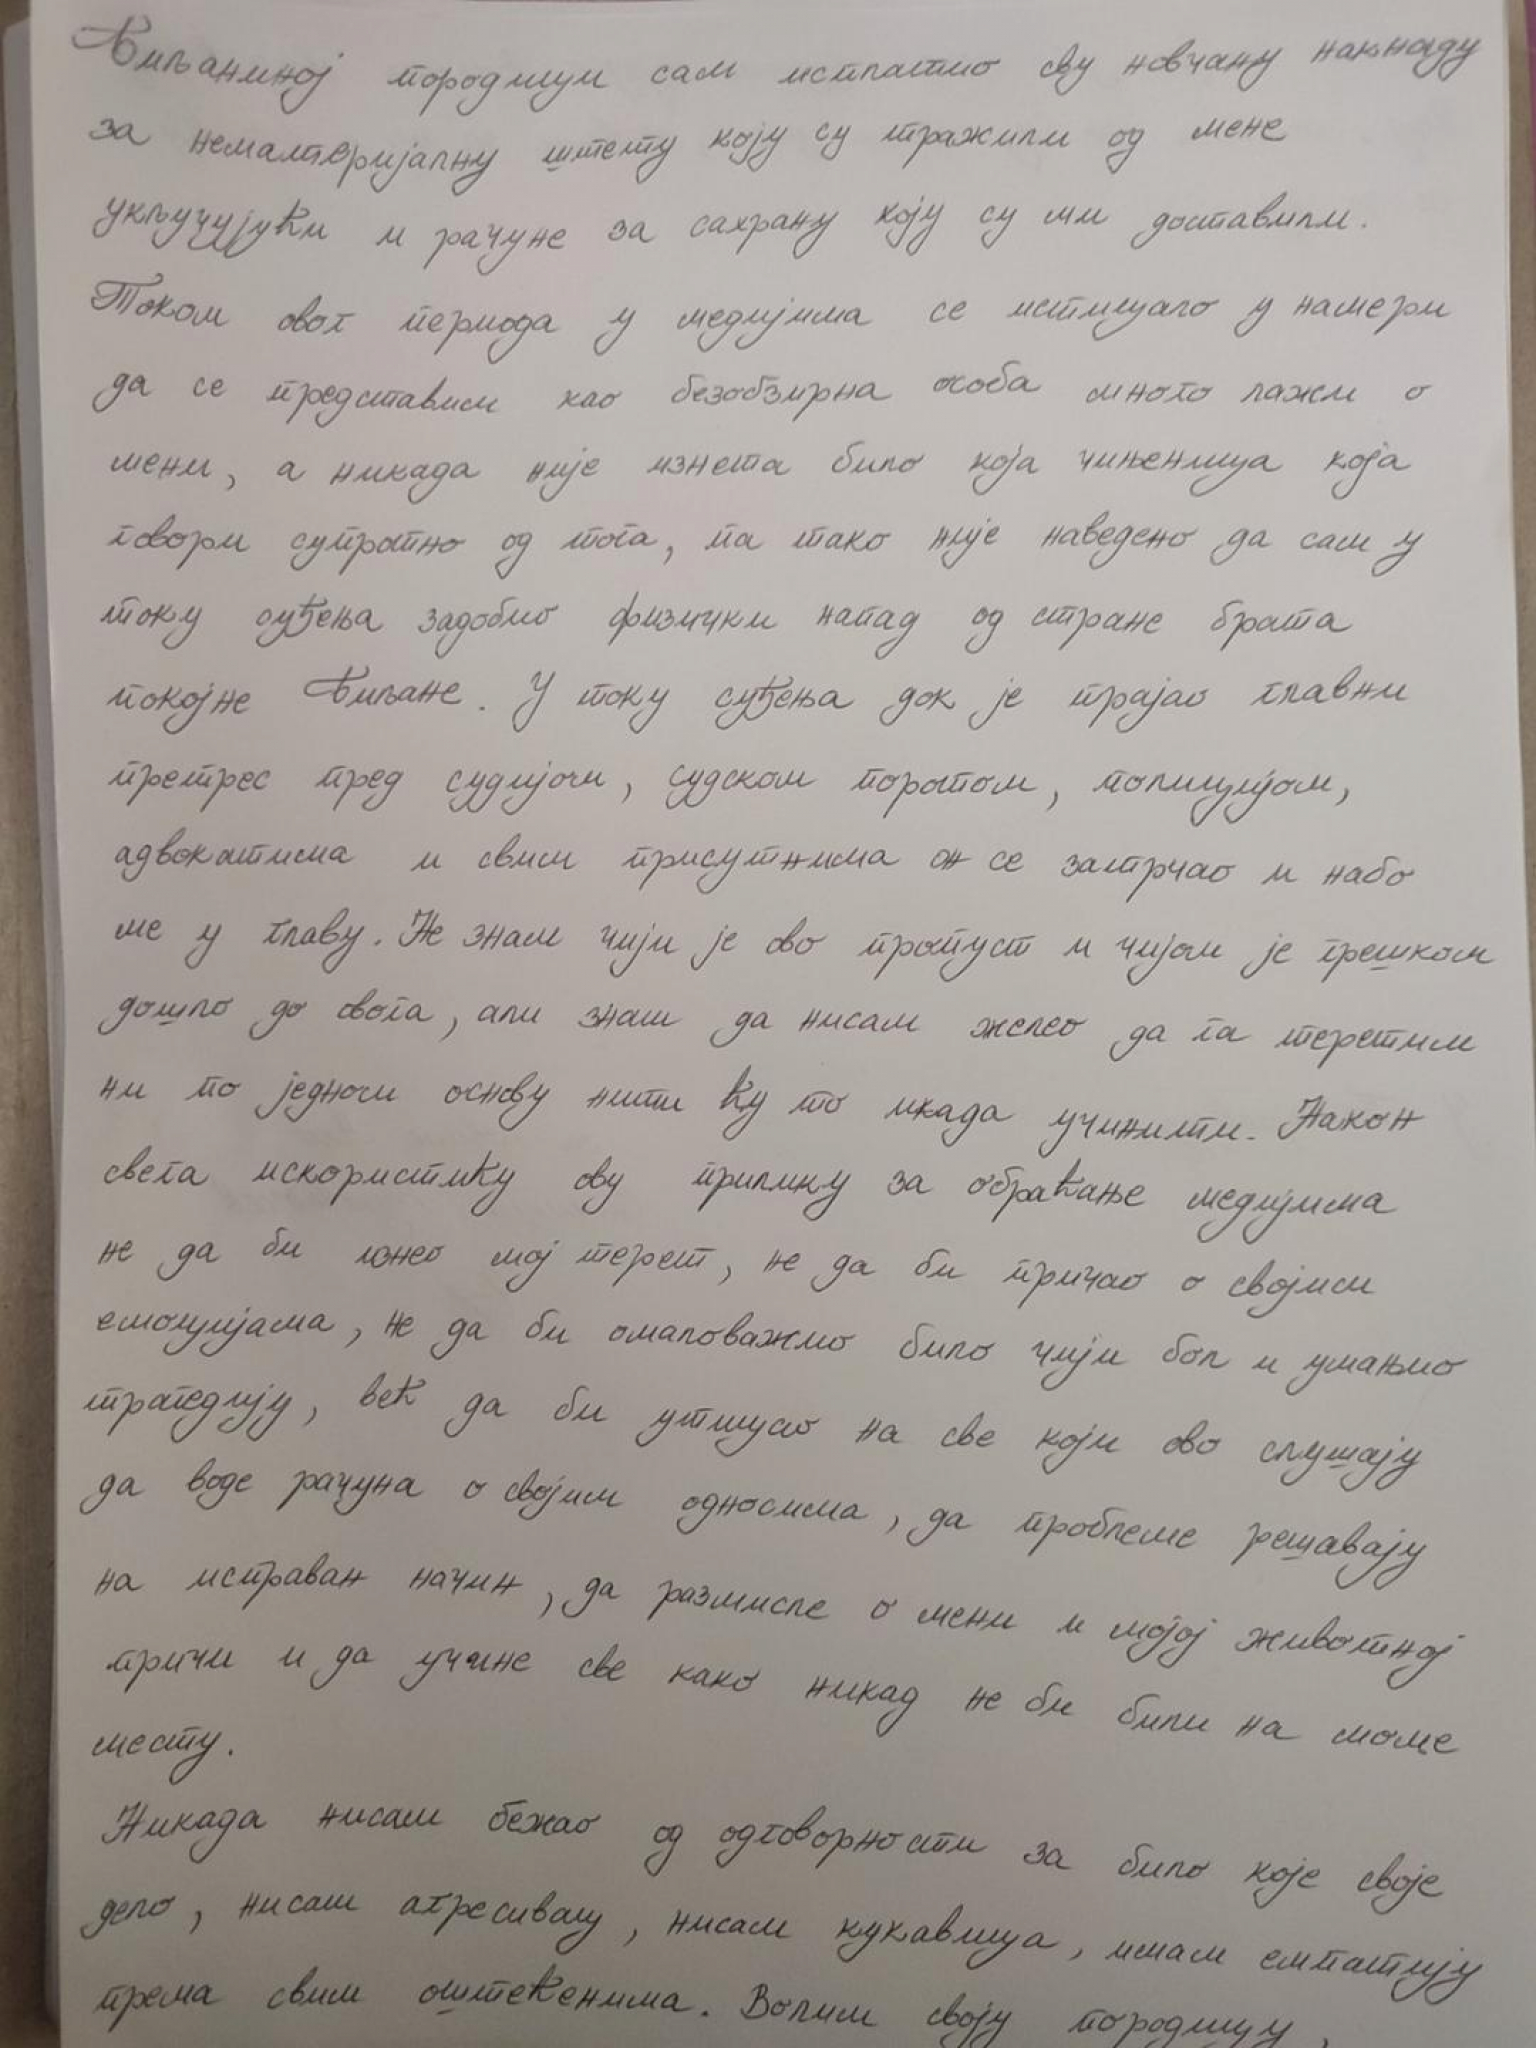 Биљаниној породици сам исплатио сву новчану накнаду
за нематеријалну штету коју су тражили од мене
укључујући и рачуне за сахрану коју су ми доставили.
Током овог периода у медијима се истицало у намери
да се представим као безобзирна особа много лажи о
мени, а никада није изнета било која чињеница која
говори супротно од тога, па тако није наведено да сам у
току суђења задобио физички напад од стране брата
покојне Биљане. У току суђења док је трајао главни
претрес пред судијом, судском поротом, полицијом,
адвокатима и свим присутнима он се затрчао и набо
ме у главу. Не знам чији је ово пропуст и чијом је грешком
дошло до овога, али знам да нисам желео да га теретим
ни по једном основу нити ћу то икада учинити. Након
свега искористићу ову прилику за обраћање медијима
не да би изнео мој терет, не да би причао о својим
емоцијама, не да би омаловажио било чији бол и умањио
трагедију, већ да би утицао на све који ово слушају
да воде рачуна о својим односима, да проблеме решавају
на исправан начин, да размисле о мени и мојој животној
причи и да учине све како никад не би били на моме
месту.
Никада нисам бежао од одговорности за било које своје
дело, нисам агресивац, нисам кукавица, имам емпатију
према свим оштећенима. Волим своју породицу,